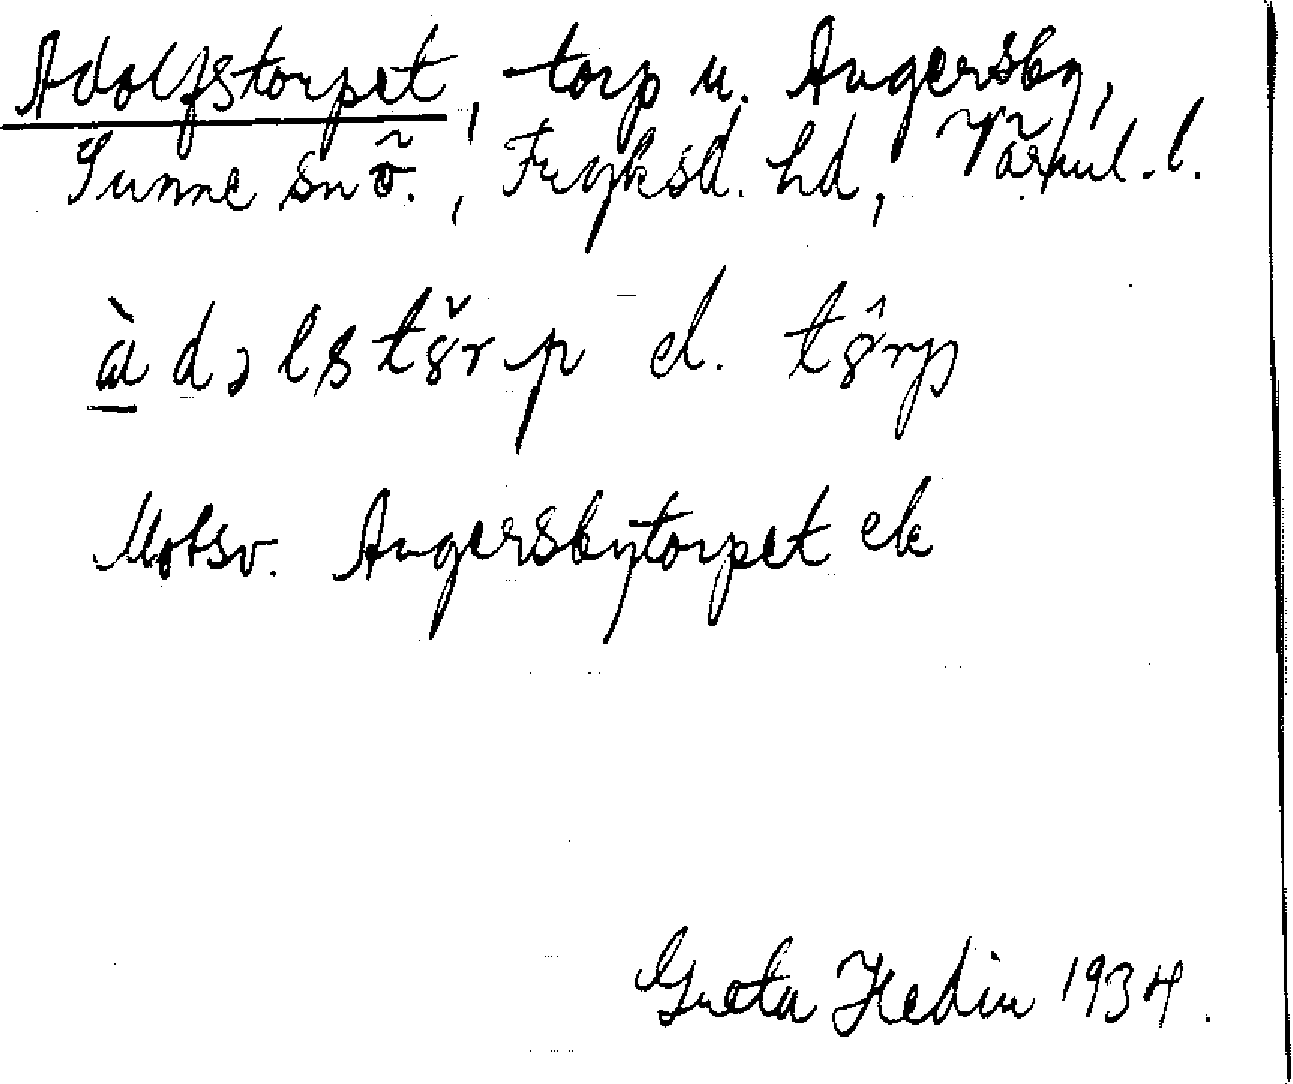 Adolfstorpet, torp u. Angersby,
Sunne sn ö., Fryksd. hd, Värml. l.
àdɔlstšrp el. tšrp
Motsv. Angersbytorpet ek
Greta Hedin 1934.